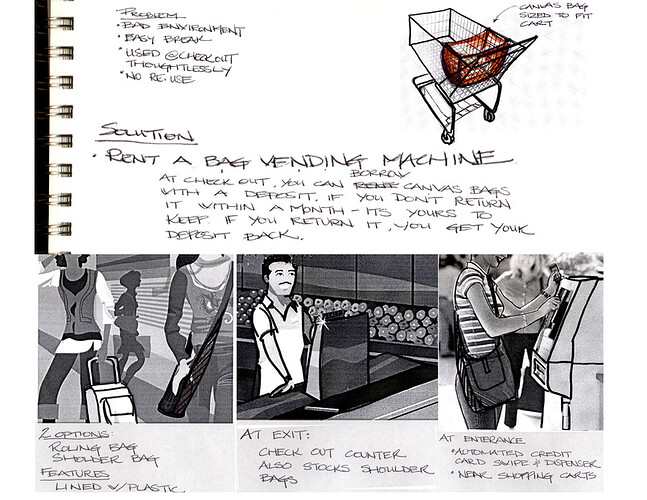 PROBLEM
• BAD ENVIRONMENT
• EASY BREAK
• USED @ CHECKOUT
THOUGHTLESSLY
• NO RE-USE
CANVAS BAG
SIZED TO FIT
CART
SOLUTION
• RENT A BAG VENDING MACHINE
AT CHECK OUT, YOU CAN RENT BORROW CANVAS BAGS
WITH A DEPOSIT. IF YOU DON'T RETURN
IT WITHIN A MONTH - ITS YOURS TO
KEEP. IF YOU RETURN IT, YOU GET YOUR
DEPOSIT BACK.
2 OPTIONS:
ROLING BAG
SHOLDER BAG
FEATURES
LINED W/PLASTIC
AT EXIT:
CHECK OUT COUNTER
ALSO STOCKS SHOULDER
BAGS
AT ENTERANCE
• AUTOMATED CREDIT
CARD SWIPE & DISPENSER
• NEAR SHOPPING CARTS